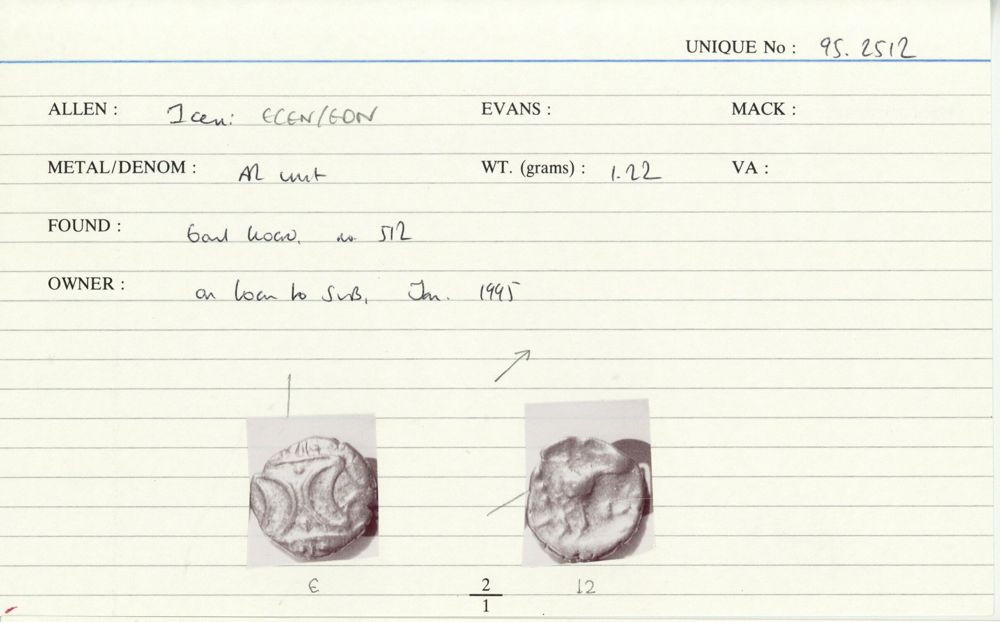 UNIQUE No : 95. 2512
ALLEN : Icen: ECEN/EDN EVANS : MACK :
METAL/DENOM : AR unit WT. (grams) : 1.22 VA :
FOUND : no. 512
OWNER : on loan to SUB, Jan. 1995
E 2/1 12